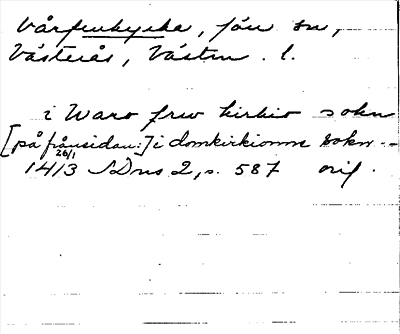 Vårfrukyrka, förs. sn,
Västerås, Västm. l.
i Waro frw kirkio sokn
[på frånsidan:] i domkirkionne sokn --
26/1
1413 SDns 2, s. 587 orig.